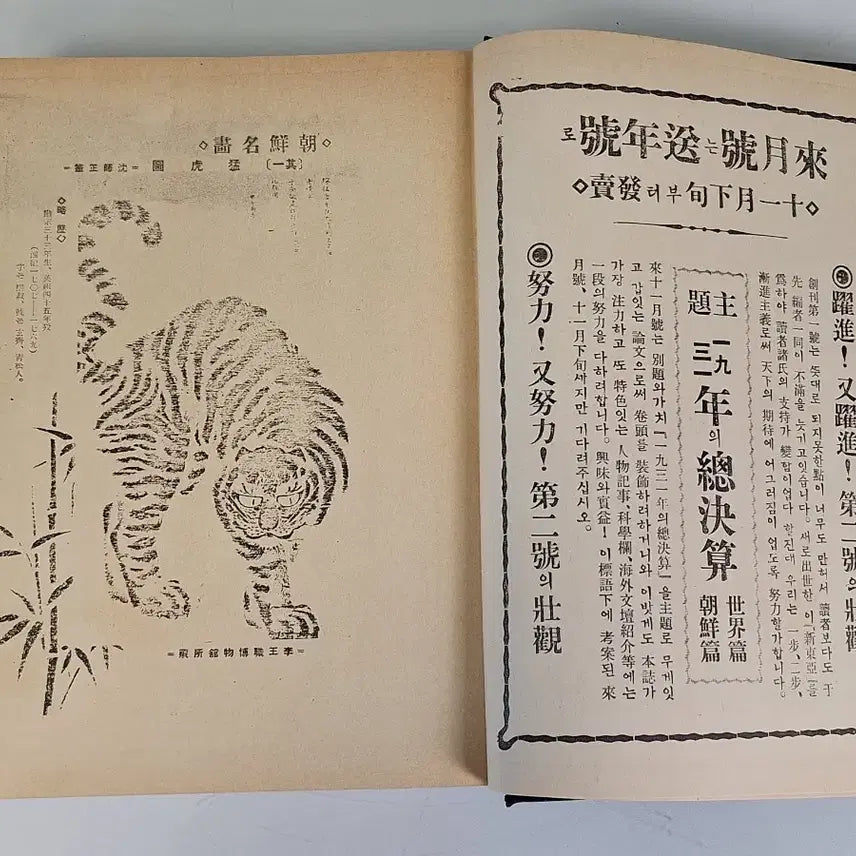 來月號는送年號로
◇十一月下旬부터發賣◇
◉躍進! 又躍進! 第二號의壯觀
創刊第一號는 뜻대로 되지못한點이 너무도 만하서 讀者보다도 于
先 編者一同이 不滿을 늣기고잇습니다. 새로出世한 이「新東亞」를
爲하야 讀者諸氏의 支持가 變함이업다 할진대 우리는 一步, 二步,
漸進主義로써 天下의 期待에 어그러짐이 업도록 努力할가합니다.
主題
一九三一年의 總決算
世界篇
朝鮮篇
來十一月號는 別題와가치「一九三一年의總決算」을主題로 무게잇
고 갑잇는 論文으로써 卷頭를 裝飾하려하거니와 이밧게도 本誌가
가장 注力하고 또 特色잇는 人物記事、科學欄、海外文壇紹介等에는
一段의努力을 다하려합니다。興味와實益! 이標語下에 考案된 來
月號、十一月下旬까지만 기다려주십시오。
◉努力! 又努力! 第二號의壯觀
◇朝鮮名畵◇
〔其一〕猛虎圖 =沈師正筆=
◇略歷◇
肅宗三十三年生、英祖四十五年歿
(西紀一七〇七——一七六九)
=李王職博物館所藏=